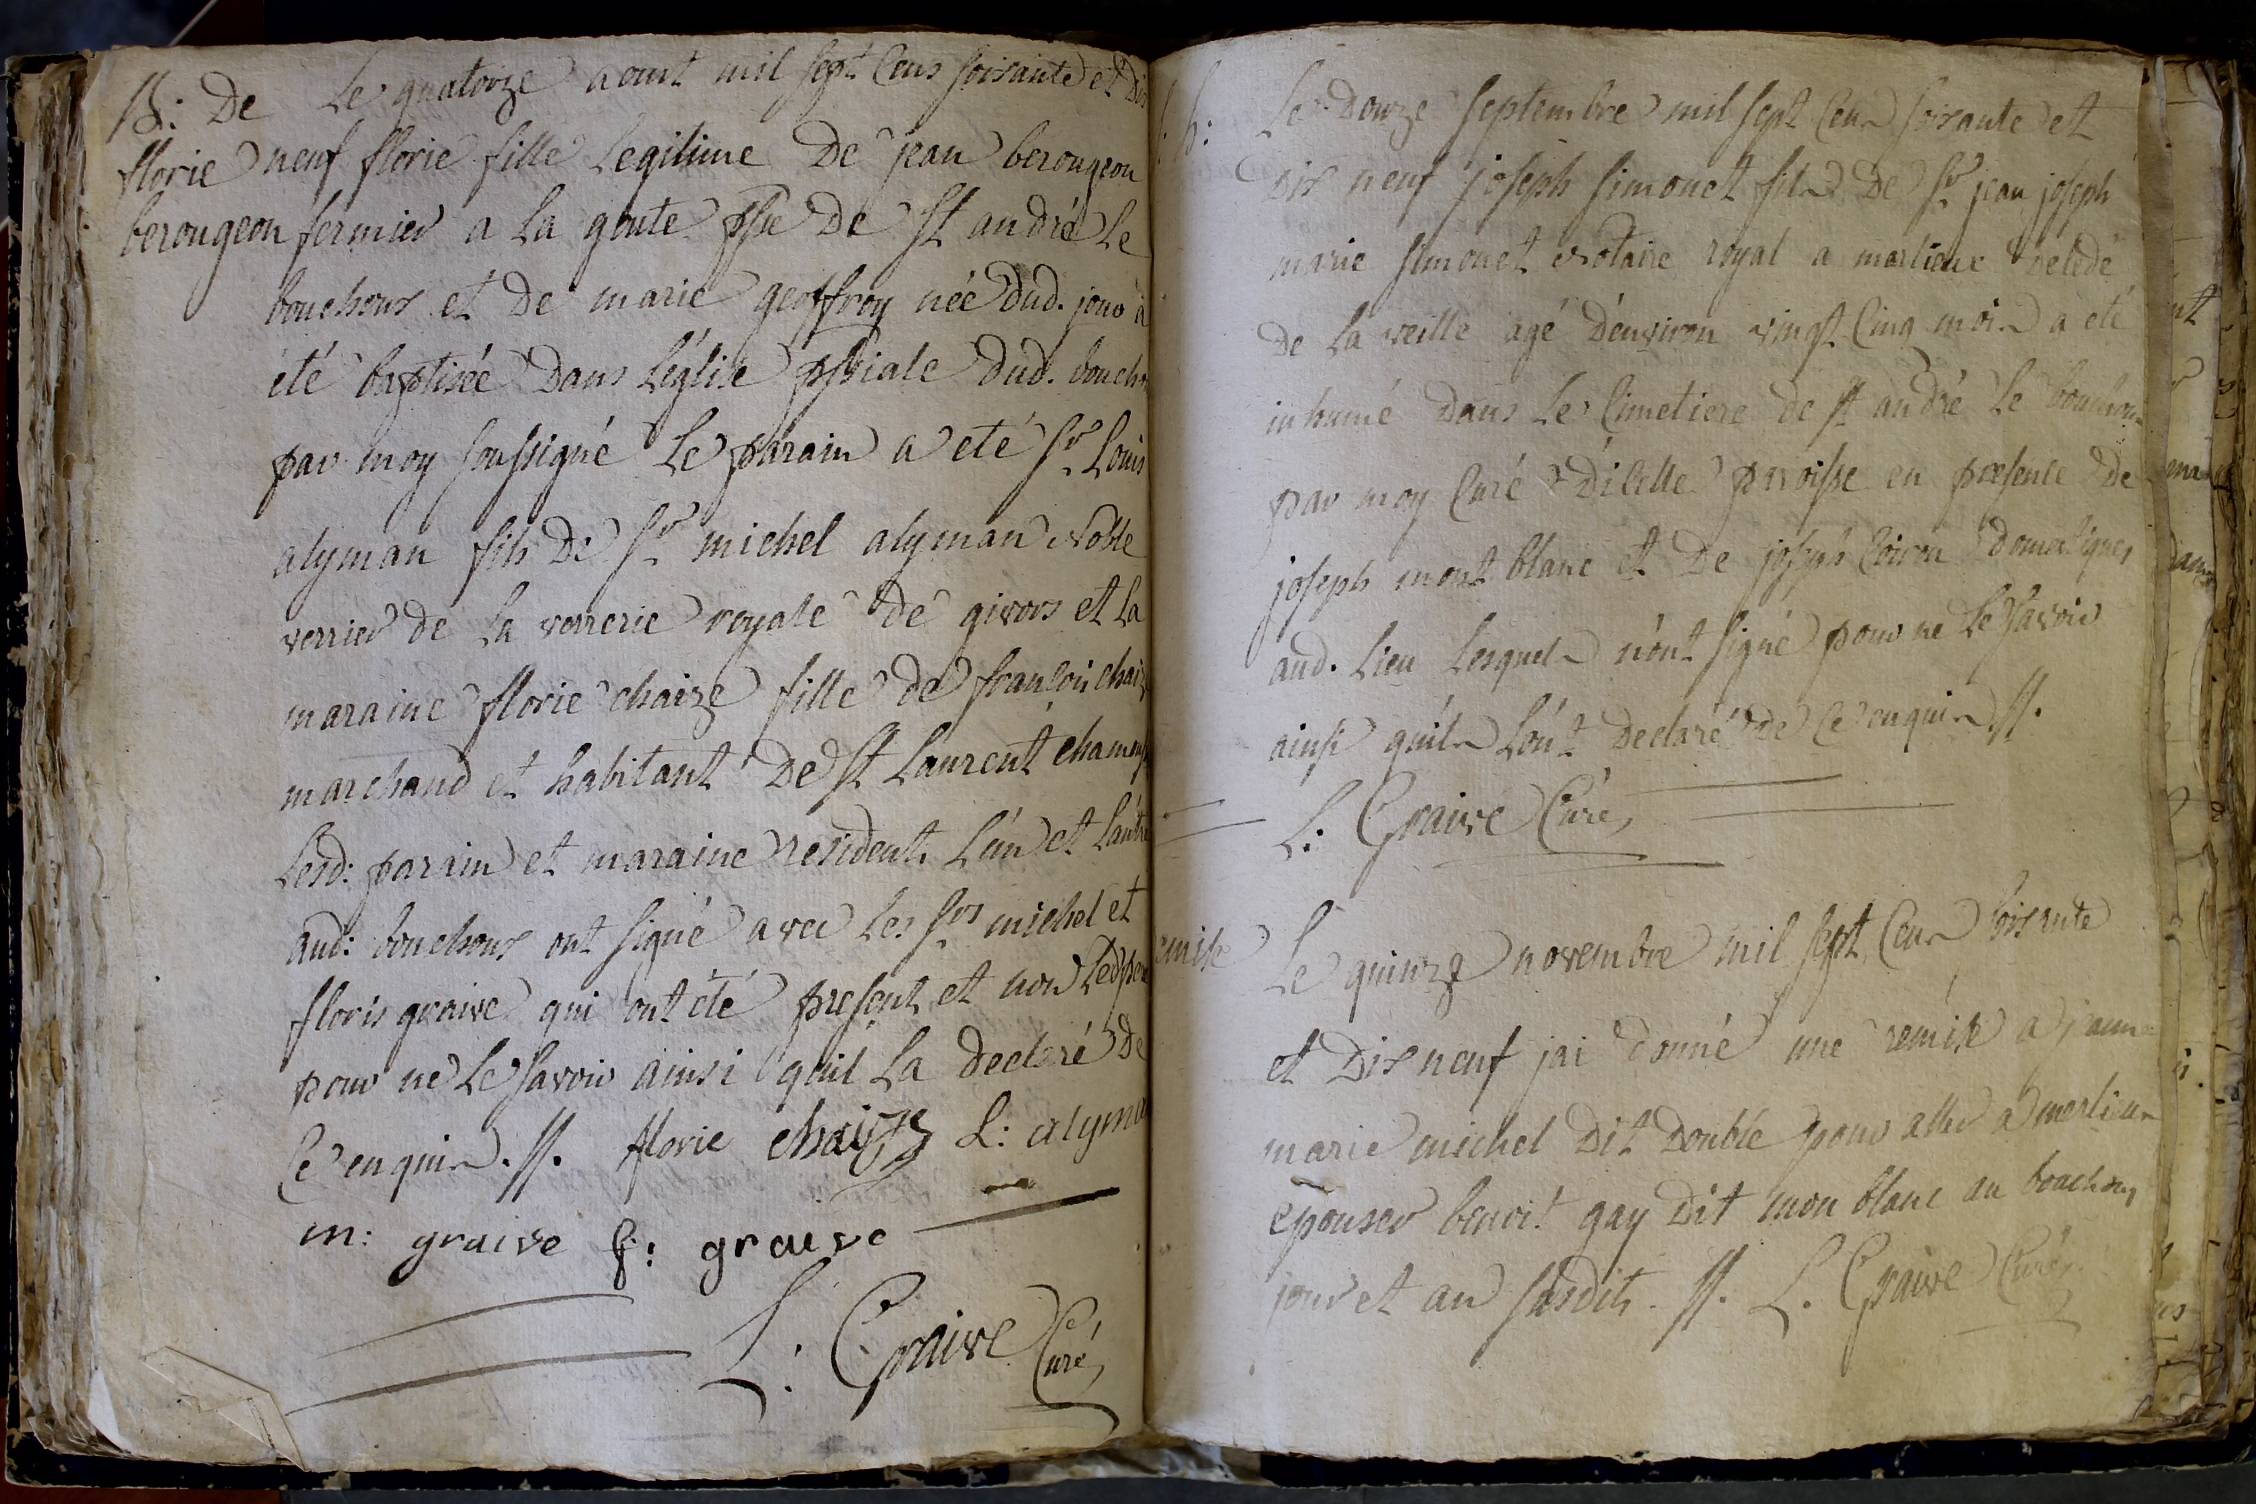 B: De
florie
berougeon
Le quatorze aoust mil sept Cens soisante et Dix
neuf florie fille Legitime De jean berougeon
fermier a La goute psse De St andré Le
bouchoux et De marie geoffroy née dud. jour a
été baptisée Dans L'églize pssiale dud. bouchoux
par moy soussigné Le parain a eté Sr Louis
alyman fils De Sr michel alyman Noble
verrier de La verrerie royale de givors et La
maraine florie chaize fille de françois chaize
marchand et habitant De St Laurent Chamousset
Lesd: parain et maraine resident L'un et L'autre
aud: bouchoux ont signé avec Les Srs michel et
floris graive qui ont été present et non Led pere
pour ne Le savoir ainsi quil La declaré De
Ce enquis. //. florie chaize L: alyman
m: graive f: graive
L: Graive Curé
S:
Le Douze septembre mil sept Cens soisante et
Dix neuf joseph simonet fils De Sr jean joseph
marie simonet Notaire royal a marlieux Décédé
De La veille agé d'environ vingt Cinq mois a eté
inhumé Dans Le Cimetiere de St andré Le bouchoux
par moy Curé D'icelle paroisse en presence de
joseph mont blanc et De joseph Coiron domestiques
aud. Lieu Lesquels n'ont signé pour ne Le savoir
ainsi qu'ils L'ont Declaré de Ce enquis //.
L: Graive Curé
remise
Le quinze novembre mil sept Cens soisante
et Dix neuf jai donné une remise a jeanne
marie michel Dit Double pour aller a marlieux
epouser benoit gay Dit mon blanc au bouchoux
jour et an susdits. //. L. Graive Curé